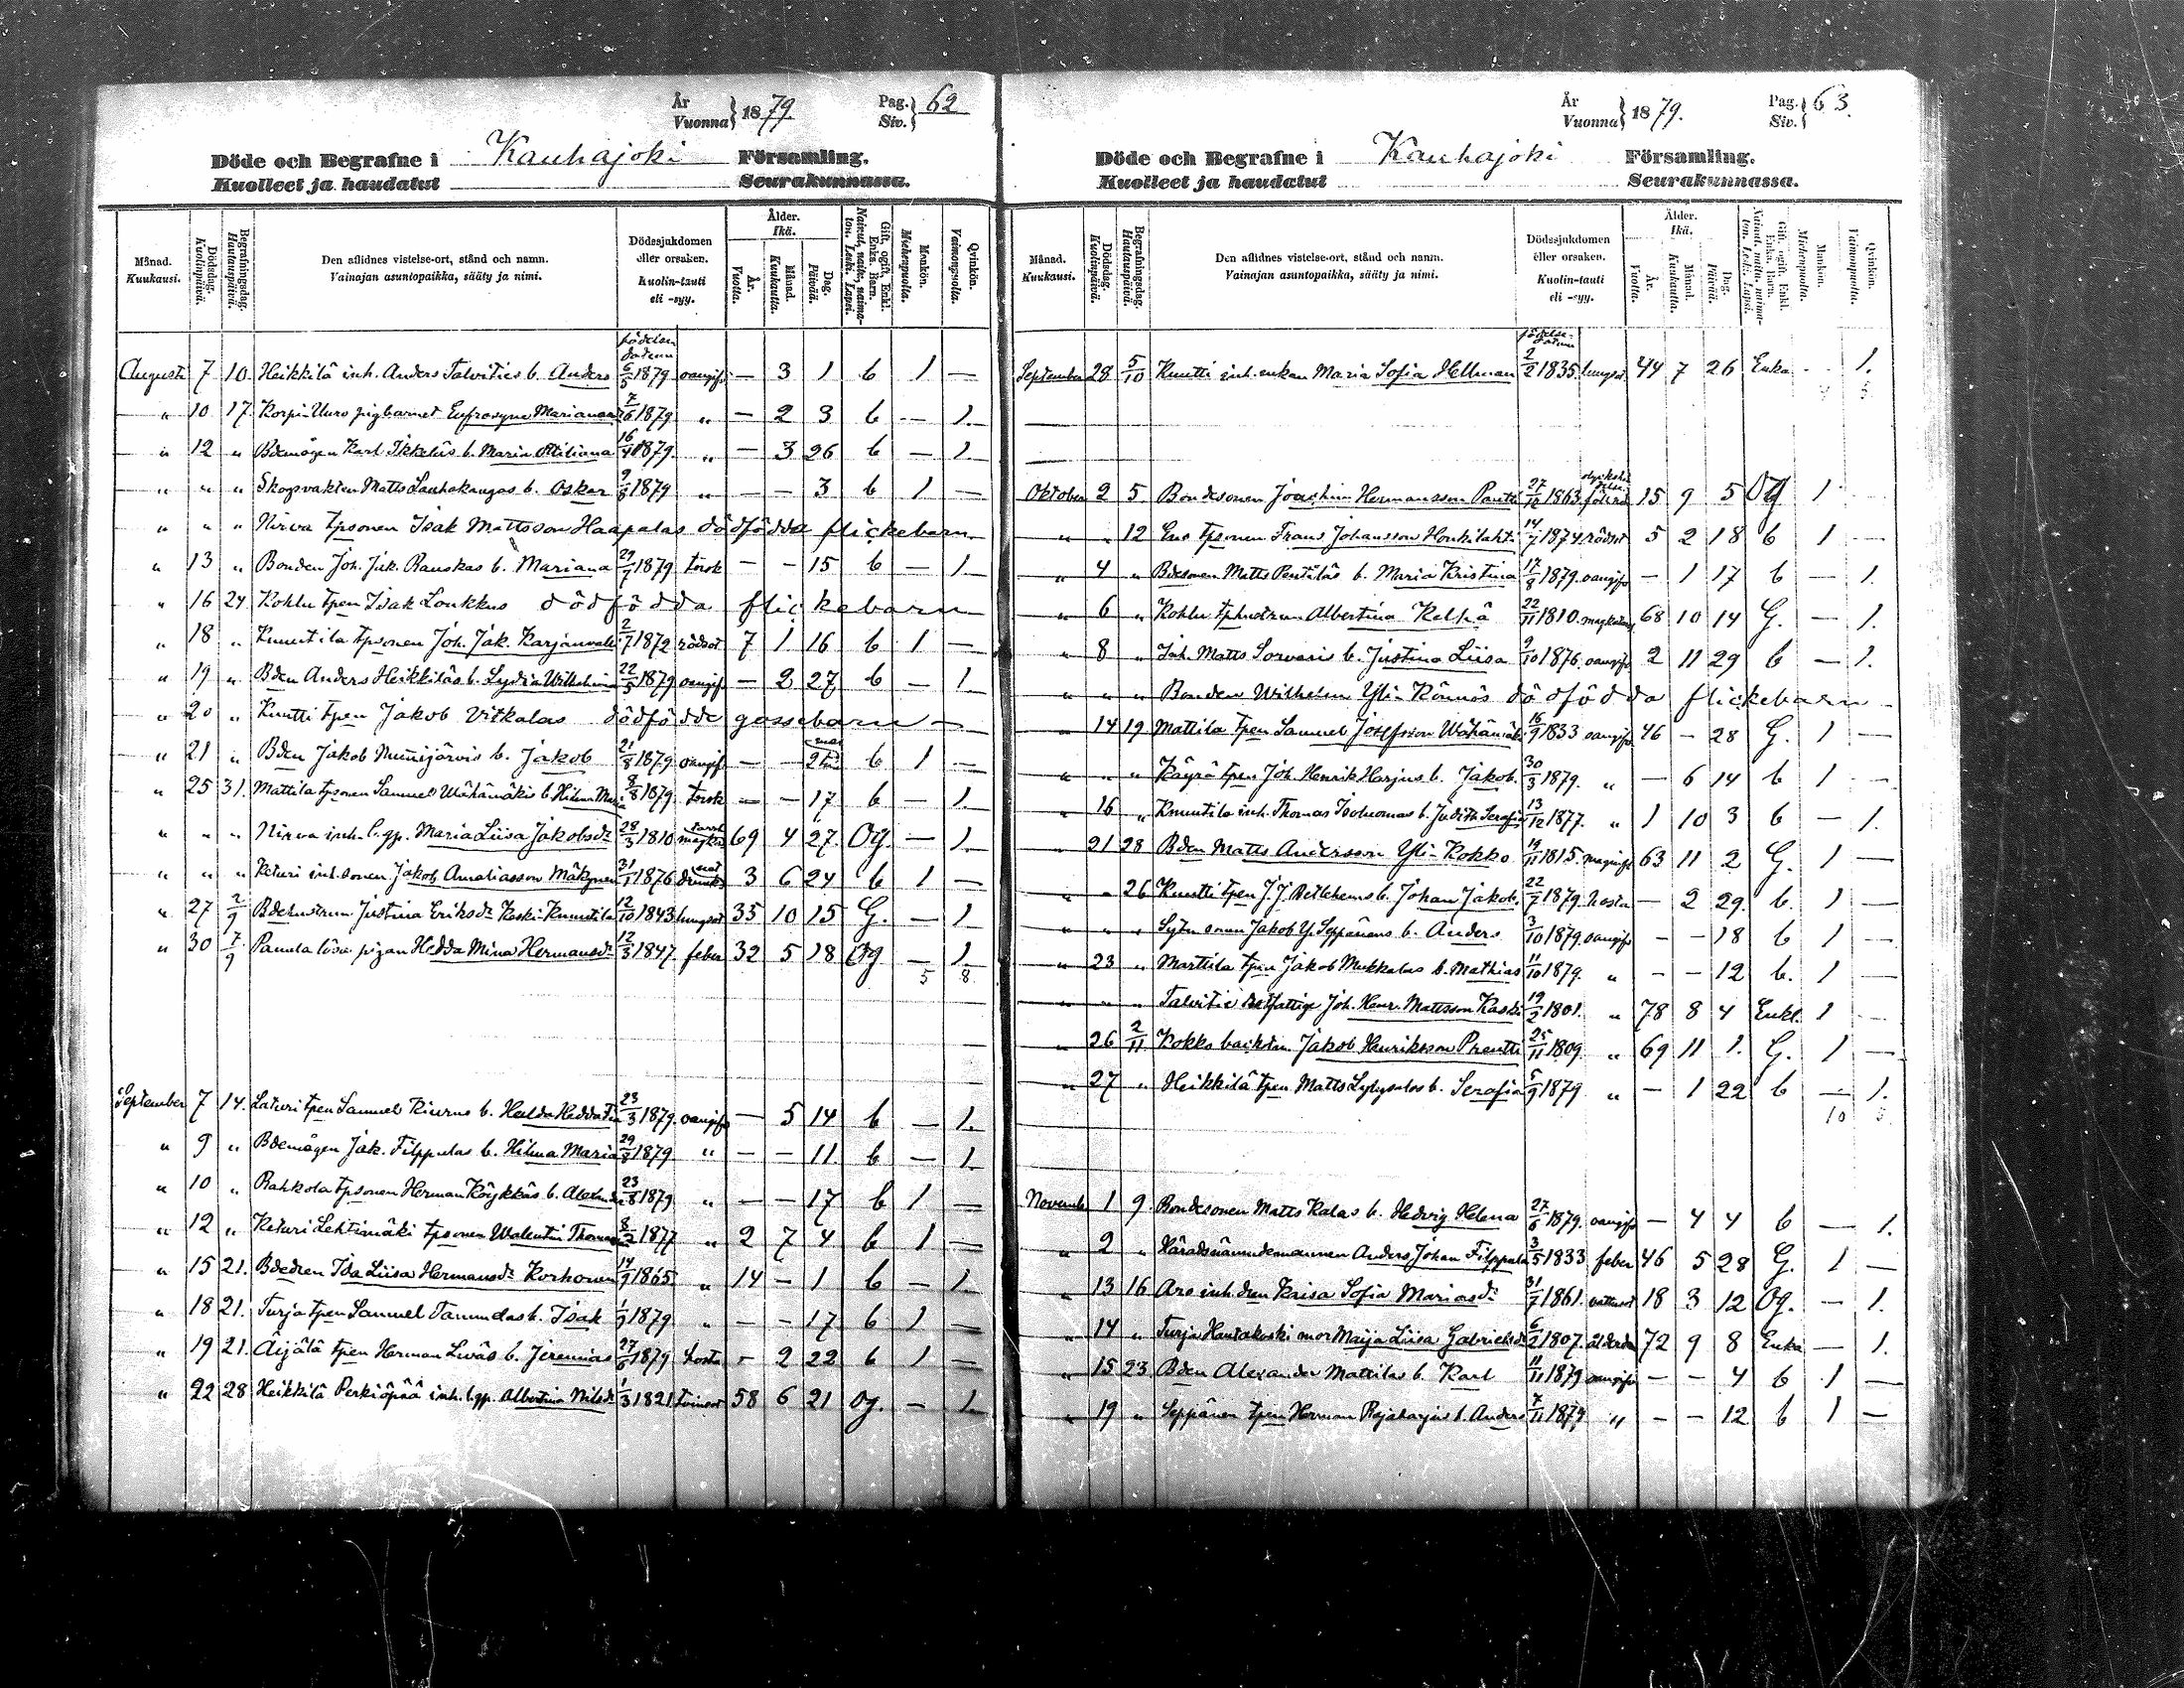 År
Vuonna } 1879. Pag.
Siv. } 62
Döde och Begrafne i Kauhajoki Församling.
Kuolleet ja haudatut Seurakunnassa.
Månad. Kuukausi. Dödsdag. Kuolinpäivä. Begrafningsdag. Hautauspäivä. Den aflidnes vistelse-ort, stånd och namn. Vainajan asuntopaikka, sääty ja nimi. Dödssjukdomen eller orsaken. Kuolin-tauti eli -syy. Ålder. Ikä. År. Vuotta. Månad. Kuukautta. Dag. Päivää. Gift, ogift, Enkl. Enka. Barn. Nainut, naitu, naimaton. Leski. Lapsi. Mankön. Miehenpuolta. Qvinkön. Vaimonpuolta.
födelse datum
Augusti 7 10. Heikkilä inh. Anders Talvities b. Anders 6/5 1879 oangif. — 3 1 b 1 —
" 10 17. Korpi-Uuro pigbarnet Eufrosyne Mariana 7/6 1879 " — 2 3 b — 1.
" 12 " Bdemågen Karl Ikkeläs b. Maria Otiliana 16/4 1879. " — 3 26 b — 1.
" " " Skogsvakten Matts Lauhakangas b. Oskar 9/8 1879 " — — 3 b 1 —
" " " Nirva tpsonen Isak Mattsson Haapalas dödfödda flickebarn
" 13 " Bonden Joh. Jak. Rauskas b. Mariana 29/7 1879 torsk — — 15 b — 1.
" 16 24 Kohlu tpen Isak Loukkus dödfödda flickebarn
" 18 " Knuutila tpsonen Joh. Jak. Karjanvalli 2/7 1872 rödsot 7 1 16 b 1 —
" 19 " Bden Anders Heikkiläs b. Lydia Wilhelmina 22/5 1879 oangif — 2 27 b — 1
" 20 " Kuntti tpen Jakob Vitkalas dödfödde gossebarn —
" 21 " Bden Jakob Nummijärvis b. Jakob 21/8 1879 oangif — — 2 tim b 1 —
" 25 31. Mattila tpsonen Samuel Wähämäkis b. Hilma Maria 8/8 1879. torsk — — 17 b — 1.
" " " Nirva inh. l.gp. Maria Liisa Jakobsdr 28/3 1810 69 4 27. Og. — 1.
" " " Keturi inh. sonen Jakob Amaliasson Mäkynen 31/1 1876 drunkn 3 6 24 b 1 —
" 27 2/9 Bdehustrun Justina Eriksdr Koski-Knuutila 12/10 1843 lungsot 35 10 15 G. — 1
" 30 7/9 Panula lösa pigan Hedda Mina Hermansdr 12/3 1847. feber 32 5 18 Og — 1.
5 8.
September 7 14. Laturi tpen Samuel Kiurus b. Hulda Hedda 23/3 1879. oangif — 5 14 b — 1.
" 9 " Bdemågen Jak. Filppulas b. Hilma Maria 29/8 1879 " — — 11. b — 1
" 10 " Rahkola tpsonen Herman Köykkäs b. 23/8 1879 " — — 17 b 1 —
" 12 " Keturi Lehtimäki tpsonen Walentin Thomasson 8/2 1877 " 2 7 4 b 1 —
" 15 21. Bdedren Ida Liisa Hermansdr Korhonen 14/9 1865 " 14 — 1 b — 1.
" 18 21. Turja tpen Samuel Tammelas b. Isak 1/9 1879 " — — 17 b 1 —
" 19 21. Äijälä tpen Herman Luoäs b. Jeremias 27/6 1879 hosta — 2 22 b 1 —
" 22 28 Heikkilä Perkiöpää inh. l.gp. Albertina Nilsdr 1/3 1821 tvinsot 58 6 21 Og. — 1.
År
Vuonna } 1879. Pag.
Siv. } 63.
Döde och Begrafne i Kauhajoki Församling.
Kuolleet ja haudatut Seurakunnassa.
Månad. Kuukausi. Dödsdag. Kuolinpäivä. Begrafningsdag. Hautauspäivä. Den aflidnes vistelse-ort, stånd och namn. Vainajan asuntopaikka, sääty ja nimi. Dödssjukdomen eller orsaken. Kuolin-tauti eli -syy. Ålder. Ikä. År. Vuotta. Månad. Kuukautta. Dag. Päivää. Gift, ogift, Enkl. Enka. Barn. Nainut, naitu, naimaton. Leski. Lapsi. Mankön. Miehenpuolta. Qvinkön. Vaimonpuolta.
födelse-datum
September 28 5/10 Knuutti inh. enkan Maria Sofia Hellman 2/2 1835. lungsot 44 7 26 Enka - 1.
Oktober 2 5. Bondesonen Joachim Hermansson Pantti 27/12 1863. 15 9 5 Og 1
" " 12 Eno tpsonen Frans Johansson Honkilahti 14/7 1874 rödsot 5 2 18 b 1 —
" 4 " Bdesonen Matts Pentiläs b. Maria Kristina 17/8 1879. oangif — 1 17 b — 1.
" 6 " Kohlu tphustrun Albertina Kelhä 22/11 1810. 68 10 14 G. — 1.
" 8 " Inh. Matts Sorvaris b. Justina Liisa 9/10 1876. oangif 2 11 29 b — 1.
" " " Bonden Wilhelm Yli-Könnös dödfödda flickebarn —
" 14 19 Mattila tpen Samuel Josefsson Wähämäki 16/9 1833 oangif 46 — 28 G. 1 —
" " " Käyrä tpen Joh. Henrik Harjus b. Jakob. 30/3 1879. " — 6 14 b 1 —
" 16 " Knuutila inh. Thomas Isoluomas b. Judith Serafia 13/12 1877. " 1 10 3 b — 1.
" 21 28 Bden Matts Andersson Yli-Kokko 19/11 1815. 63 11 2 G. 1 —
" " 26 Knuutti tpen J. J. Betlehems b. Johan Jakob. 22/7 1879. hosta — 2 29. b. 1 —
" " " Sytmsonen Jakob Y. Seppänens b. Anders 3/10 1879. oangif — — 18 b 1 —
" 23 " Marttila tpen Jakob Mukkalas b. Mathias 11/10 1879. " — — 12 b. 1 —
" " " Talvitie Rotfattige Joh. Henr. Mattsson Kaski 19/2 1801. " 78 8 4 Enkl. 1 —
" 26 2/11 Kokko Jakob Henriksson Prentti 25/11 1809. " 69 11 1. G. 1 —
" 27 " Heikkilä tpen Matts Lylysalos b. Serafia 5/9 1879 " — 1 22 b — 1.
10
Novemb 1 9. Bondesonen Matts Kalas b. Hedvig Helena 27/6 1879. oangif — 4 4 b — 1.
" 2 " Häradsnämndemannen Anders Johan Filppula 3/5 1833 feber 46 5 28 G. 1 —
" 13 16 Aro inh. dren Kaisa Sofia Mariasdr 31/7 1861. vattusot 18 3 12 Og. — 1.
" 14 " Turja Hautakoski mor Maija Liisa Gabrielsdr 6/2 1807. ålderdom 72 9 8 Enka — 1.
" 15 23 Bden Alexander Mattilas b. Karl 11/11 1879 oangif — — 4 b 1 —
" 19 " Seppänen tpen Herman Rajaharjus b. Anders 7/11 1879 " — — 12 b 1 —